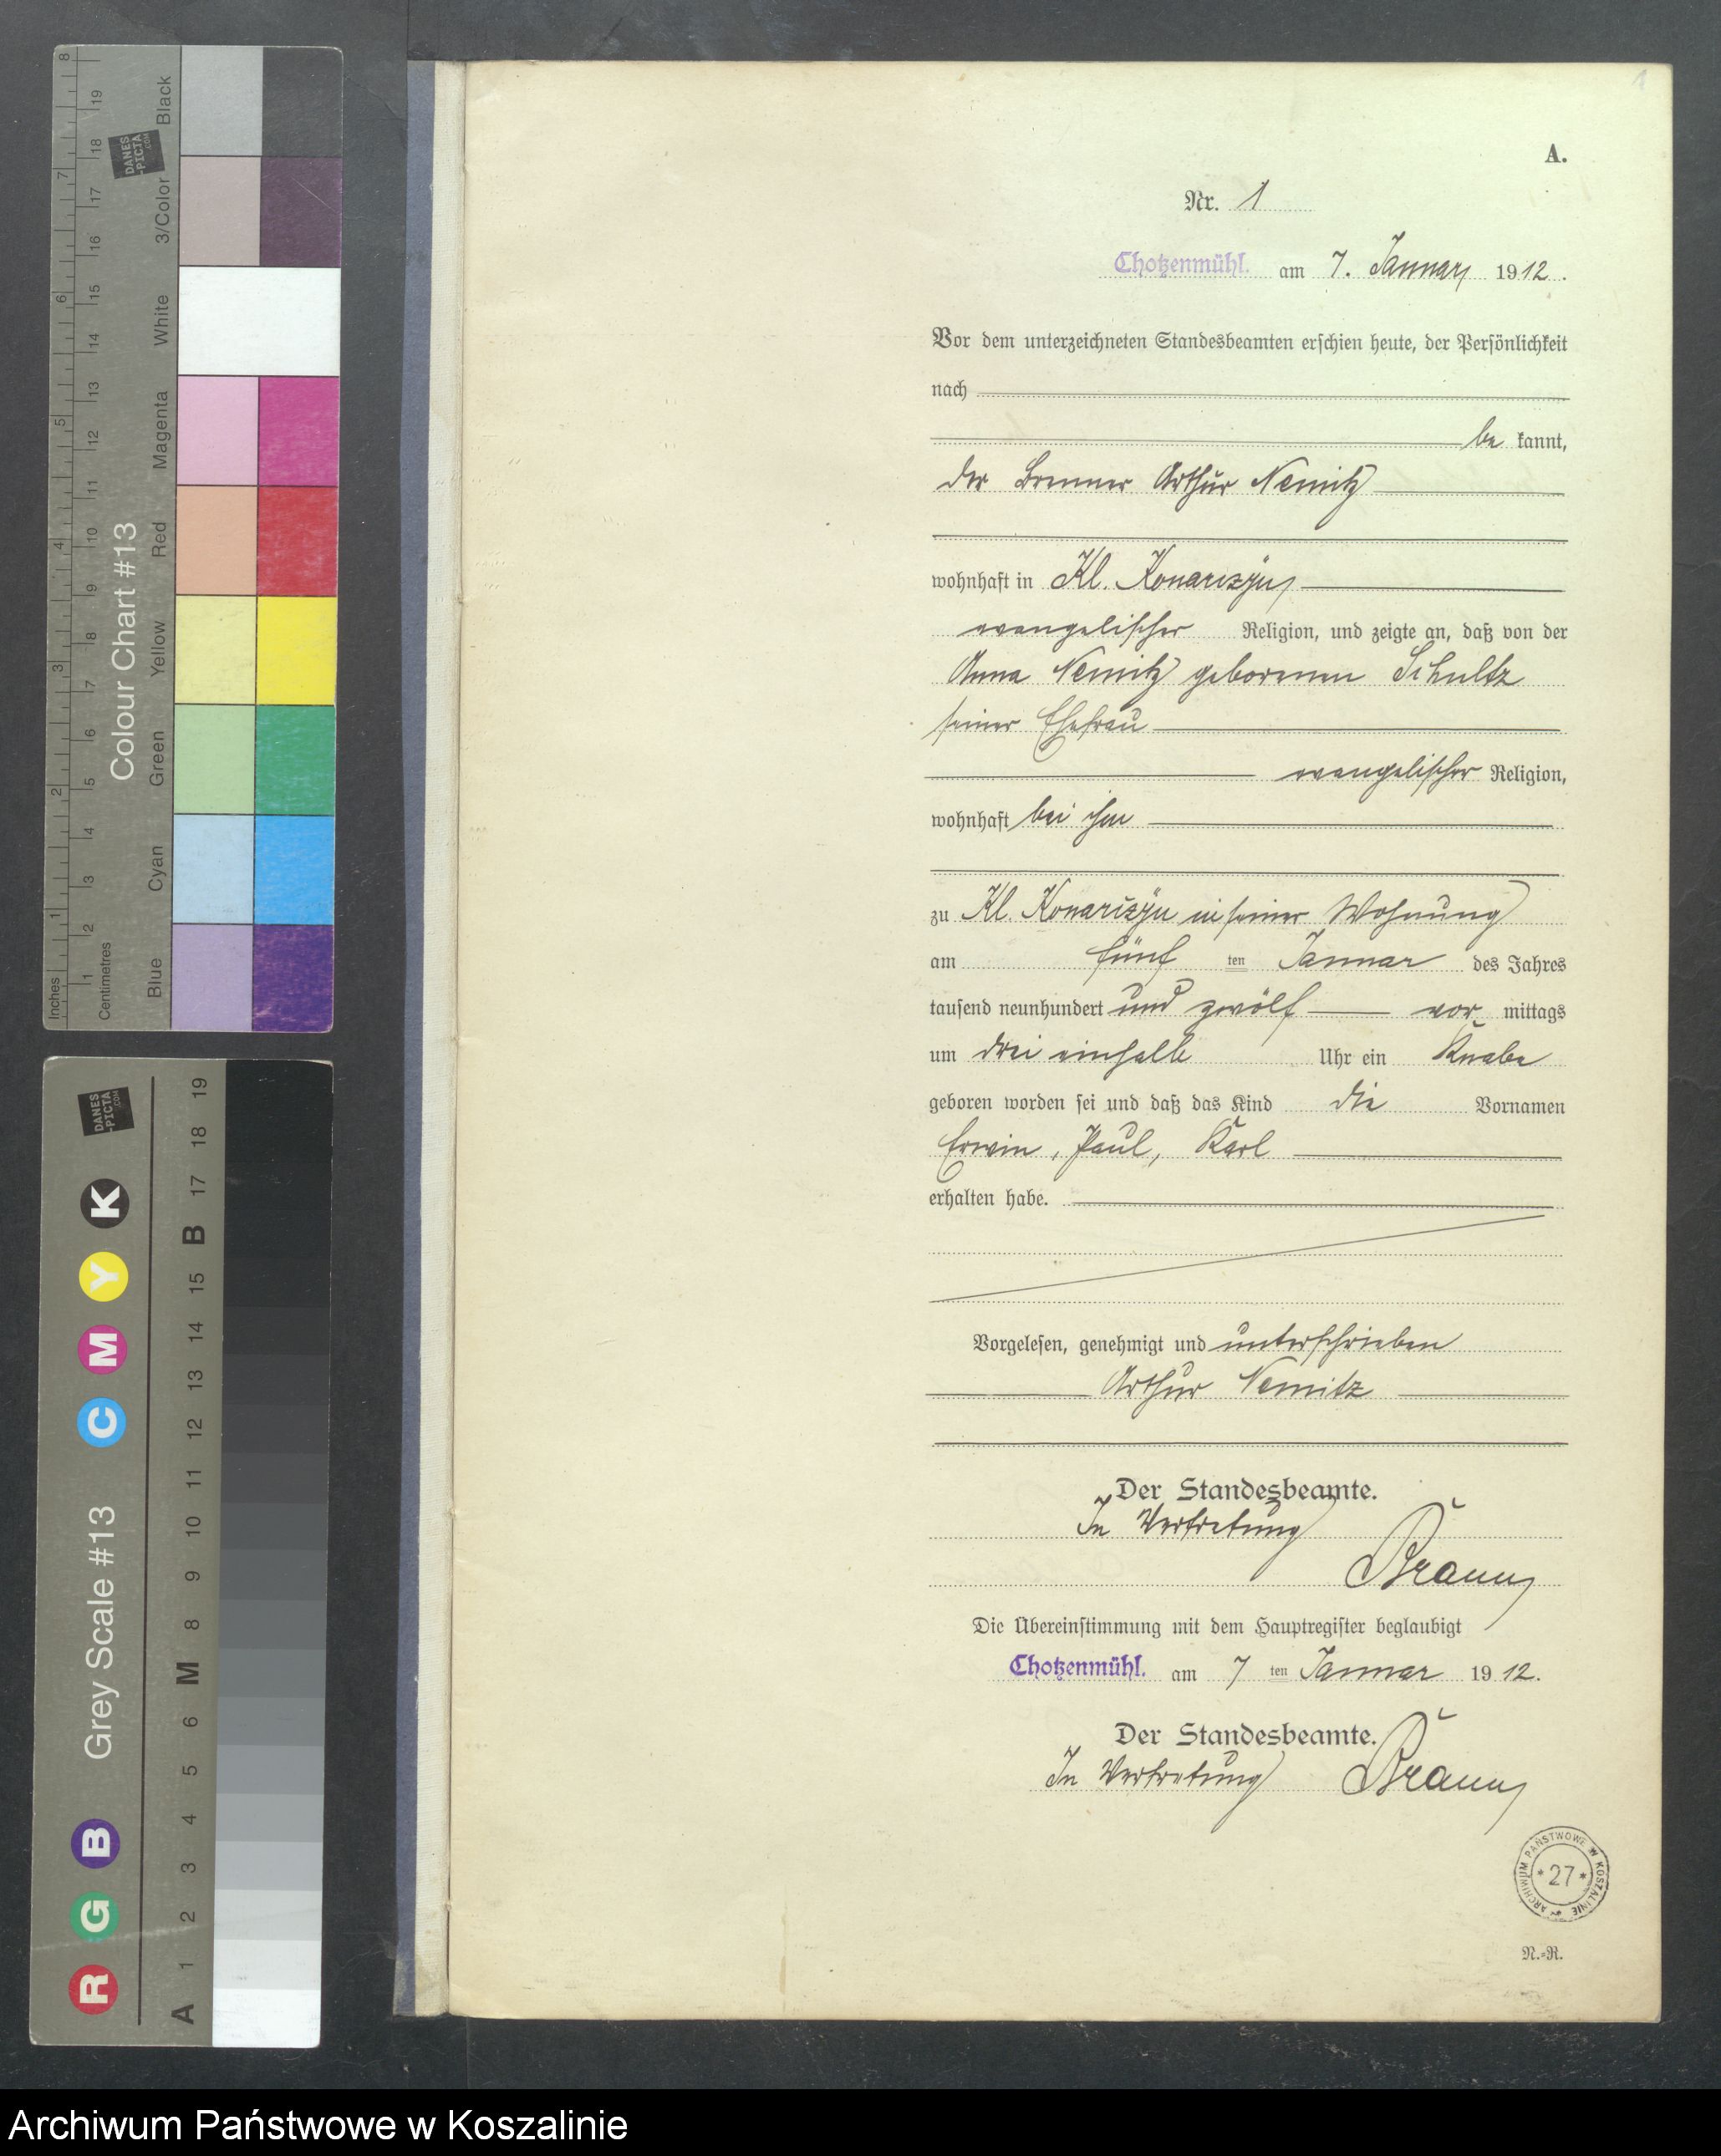 A.
Nr. 1
Chotzenmühl. am 7. Januar 1912.
Vor dem unterzeichneten Standesbeamten erschien heute, der Persönlichkeit
nach
be kannt,
der Brenner Arthur Nemitz
wohnhaft in Kl. Konarczyn,
evangelischer Religion, und zeigte an, daß von der
Anna Nemitz geborenen Schultz
seiner Ehefrau
evangelischer Religion,
wohnhaft bei ihm
zu Kl. Konarczyn in seiner Wohnung
am fünf ten Januar des Jahres
tausend neunhundert und zwölf vor mittags
um drei einhalb Uhr ein Knabe
geboren worden sei und daß das Kind die Vornamen
Erwin, Paul, Karl
erhalten habe.
Vorgelesen, genehmigt und unterschrieben
Arthur Nemitz
Der Standesbeamte.
In Vertretung
Braun
Die Übereinstimmung mit dem Hauptregister beglaubigt
Chotzenmühl. am 7 ten Januar 1912.
Der Standesbeamte.
In Vertretung Braun
ARCHIWUM PAŃSTWOWE W KOSZALINIE
* 27 *
N.=R.
1
Colour Chart #13
Black
3/Color
White
Magenta
Red
Yellow
Green
Cyan
Blue
Inches 1 2 3 4 5 6 7 8
Centimetres 1 2 3 4 5 6 7 8 9 10 11 12 13 14 15 16 17 18 19
DANES
-PICTA
.COM
Grey Scale #13
R G B C M Y K
A 1 2 3 4 5 6 M 8 9 10 11 12 13 14 15 B 17 18 19
DANES
-PICTA
.COM
Archiwum Państwowe w Koszalinie